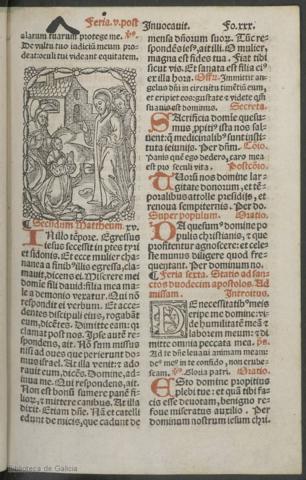 Feria.v.post Inuocauit. Fo.xxx.
alarum tuarum protege me. v̄s.
De vultu tuo iudiciũ meum pro
deat:oculi tui videant equitatem.
Secũdum Mattheum. xv.
IN illo tẽpore. Egressus
iesus secessit in ptes tyri
et sidonis. Et ecce mulier cha-
nanea a finib⁹ illis egressa, cla-
mauit, dicens ei. Miserere mei
dñe fili dauid: filia mea ma-
le a demonio vexatur. Qui nõ
respondit ei verbum. Et acce-
dentes discipuli eius, rogabãt
eum, dicẽtes. Dimitte eam: qz
clamat post nos. Ipse aut̃ re-
spondens, ait. Nõ sum missus
nisi ad oues que perierunt do-
mus israel. At illa venit: z ado
rauit eum, dicẽs. Domine, ad-
iuua me. Qui respondens, ait.
Non est bonũ sumere panẽ fi-
lior̃, z mittere canibus. At illa
dixit. Etiam dñe. Nã et catelli
edunt de micis, que cadunt de
mensa dñorum suor̃. Tũc re-
spondẽs iesus, ait illi. O mulier,
magna est fides tua. Fiat tibi
sicut vis. Et sanata est filia ei⁹
ex illa hora. Offer̃. Immittit an-
gelus dñi in circuitu timẽtiũ eum,
et eripiet eos: gustate z videte qm̃
suauis est dominus. Secreta.
SAcrificia domĩe quesu-
mus ppiti⁹ ista nos sal-
uent: q̃ medicinalib⁹ sunt insti
tuta ieiunijs. Per dñm. Cõio.
Panis quẽ ego dedero, caro mea
est pro seculi vita. Postcõio.
TUor̃ nos domine lar-
gitate donorum, et tẽ-
poralibus attolle presidijs, et
renoua sempiternis. Per do.
Super populum. Oratio.
DA quesum⁹ domine po
pulis christianis, z que
profitentur agnoscere: et cele-
ste munus diligere quod fre-
quentant. Per dominum no.
Feria sexta. Statio ad san-
ctos duodecim apostolos. Ad
missam. Introitus.
DE necessitatib⁹ meis
eripe me domine: vi-
de humilitatẽ meã z
laborem meum: z di
mitte omnia peccata mea. ps.
Ad te dñe leuaui animam meam:
de⁹ me⁹ in te confido, non erube-
scam. v̄s. Gloria patri. Oratio.
ESto domine propitius
plebi tue: et quã tibi fa-
cis esse deuotam, benigno re-
foue miseratus auxilio. Per
dominum nostrum iesum chri.
Biblioteca de Galicia